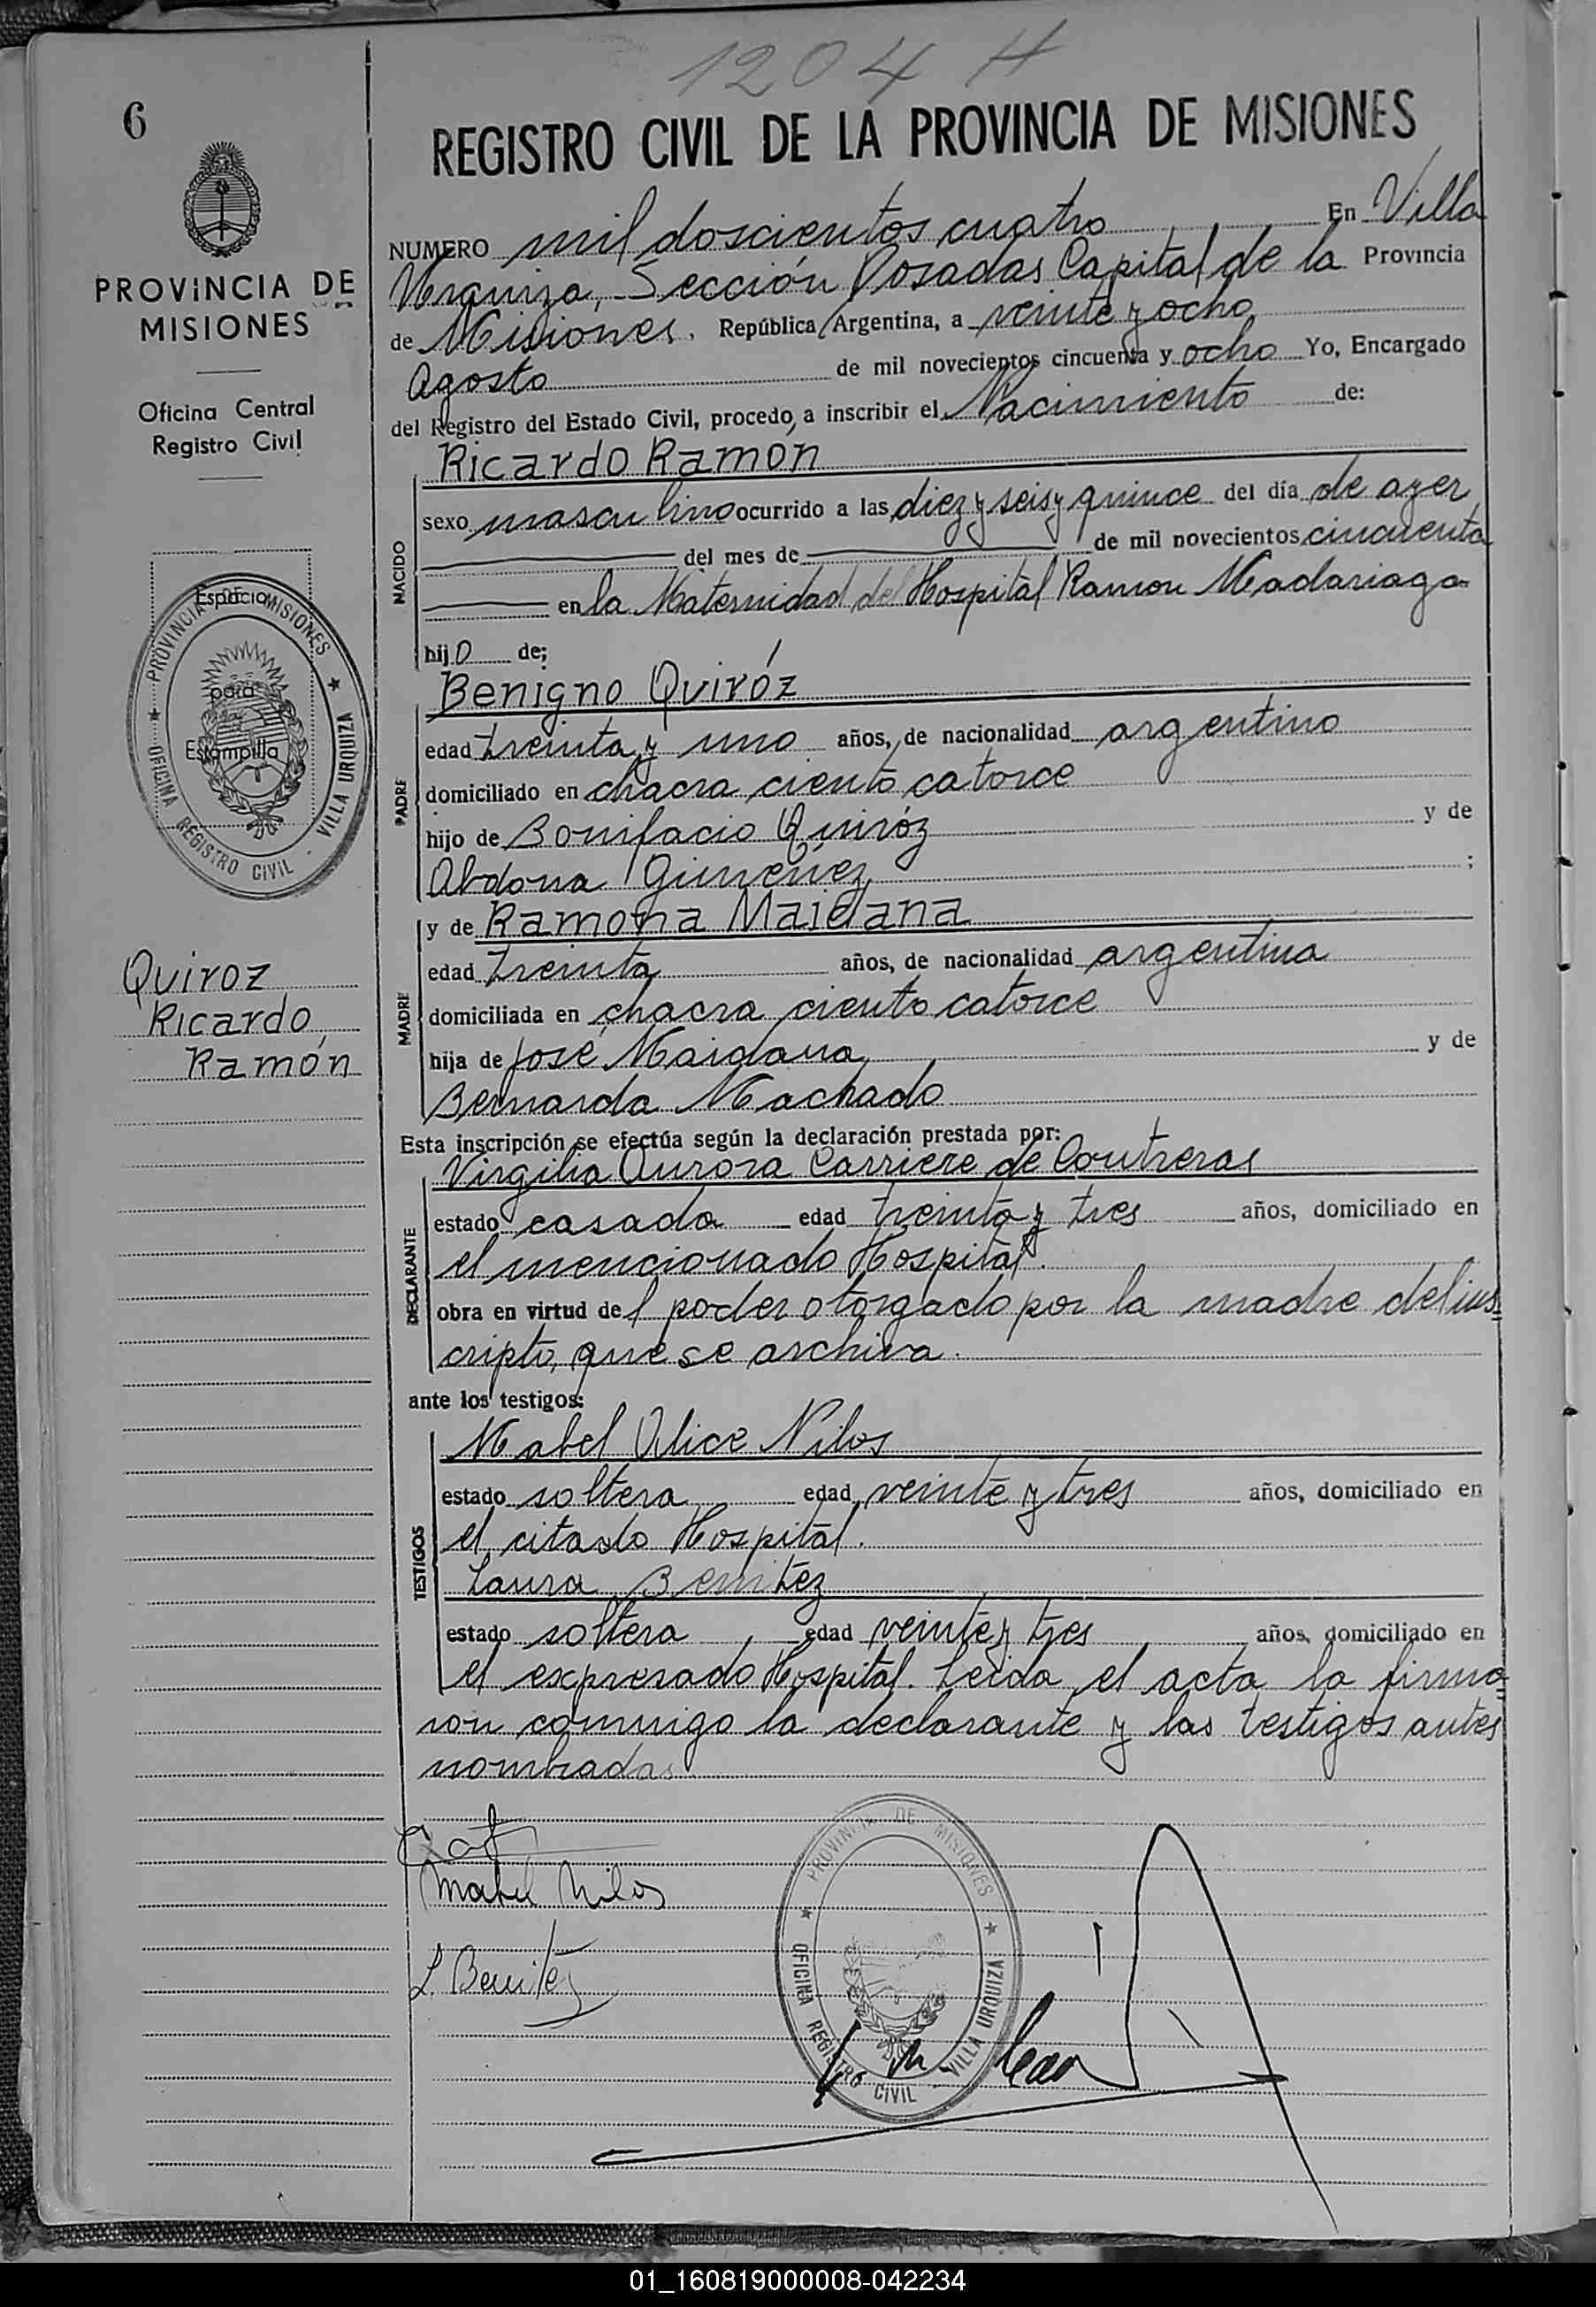 1204 H
6
REGISTRO CIVIL DE LA PROVINCIA DE MISIONES
PROVINCIA DE
MISIONES
Oficina Central
Registro Civil
NUMERO mil doscientos cuatro En Villa
Urquiza, Sección Posadas Capital de la Provincia
de Misiones. República Argentina, a veinte y ocho
Agosto de mil novecientos cincuenta y ocho Yo, Encargado
del Registro del Estado Civil, procedo a inscribir el Nacimiento de:
Ricardo Ramón
NACIDO
sexo masculino ocurrido a las diez y seis y quince del día de ayer
del mes de de mil novecientos cincuenta
en la Maternidad del Hospital Ramon Madariaga
hijo de;
Espacio
para
Estampilla
PROVINCIA DE MISIONES
OFICINA REGISTRO CIVIL - VILLA URQUIZA
Benigno Quiróz
PADRE
edad treinta y uno años, de nacionalidad argentino
domiciliado en chacra ciento catorce
hijo de Bonifacio Quiróz y de
Abdona Gimenez ;
y de Ramona Maidana
MADRE
edad treinta años, de nacionalidad argentina
domiciliada en chacra ciento catorce
hija de José Maidana y de
Bernarda Machado
Quiroz
Ricardo
Ramón
Esta inscripción se efectúa según la declaración prestada por:
Virgilia Aurora Carriere de Contreras
DECLARANTE
estado casada edad treinta y tres años, domiciliado en
el mencionado Hospital.
obra en virtud del poder otorgado por la madre del ins
cripto, que se archiva.
ante los testigos:
Mabel Alice Nilos
TESTIGOS
estado soltera edad veinte y tres años, domiciliado en
el citado Hospital.
Laura Benitez
estado soltera, edad veinte y tres años, domiciliado en
el expresado Hospital. Leida el acta la firma=
ron conmigo la declarante y las testigos antes
nombradas
Mabel Nilos
L. Benitez
PROVINCIA DE MISIONES
OFICINA REGISTRO CIVIL - VILLA URQUIZA
01_160819000008-042234